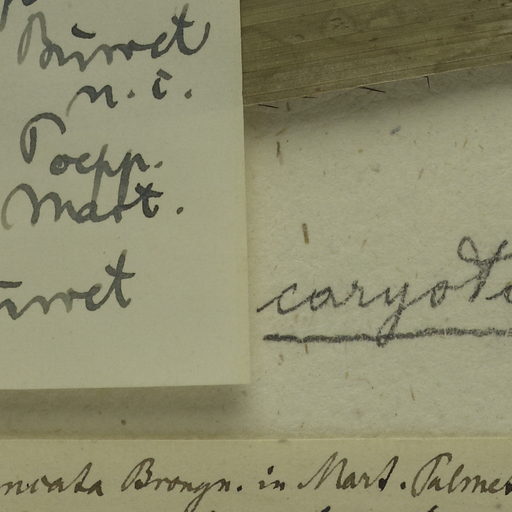 Burret
n. c.
Poepp.
Mart.
urret
caryot
uncata Brongn. in Mart. Palmet